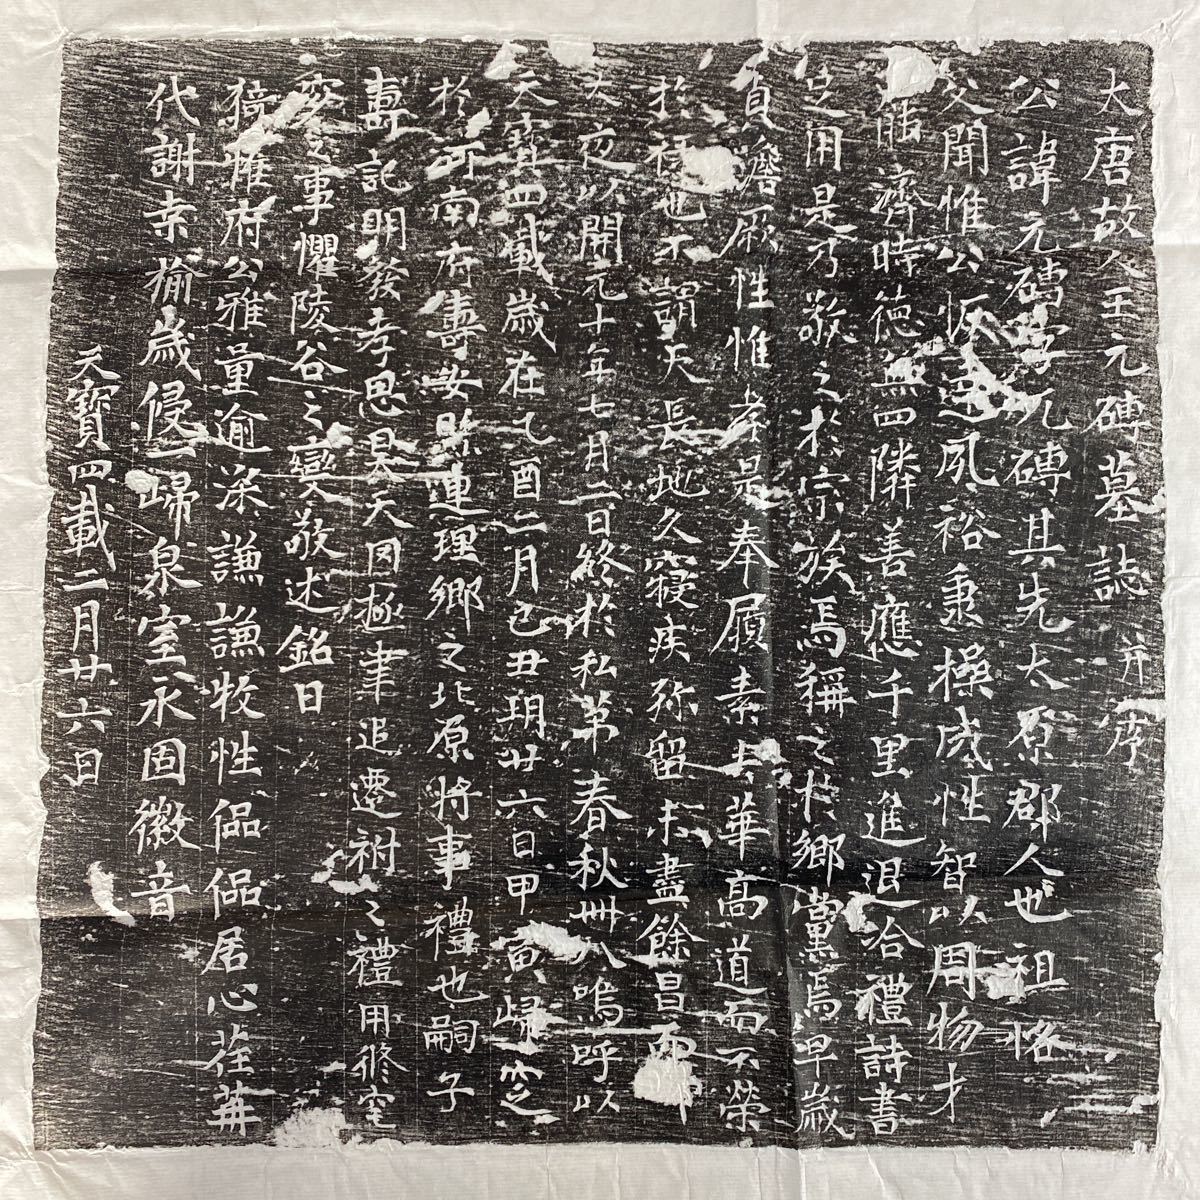 大唐故人王元磚墓誌并序
公諱元磚字元磚其先太原郡人也祖恪
父聞惟公夙裕秉操成性智以周物才
濟時德無四隣善應千里進退合禮詩書
是用是乃敬之於宗族焉稱之於鄉黨焉早歲
厥性惟孝是奉履素去華高道而不榮
於禄也不謂天長地久寢疾弥留未盡餘昌而
大夜以開元十年七月二日終於私第春秋卌八嗚呼以
天寶四載歲在乙酉二月己丑朔廿六日甲寅歸窆
於河南府壽安縣連理鄉之北原將事禮也嗣子
壽記明發孝思昊天罔極聿追遷祔之禮用修窀
穸之事懼陵谷之變敬述銘曰
猗惟府公雅量逾深謙謙牧性偘偘居心荏苒
代謝桒榆歲侵一歸泉室永固徽音
天寶四載二月廿六日